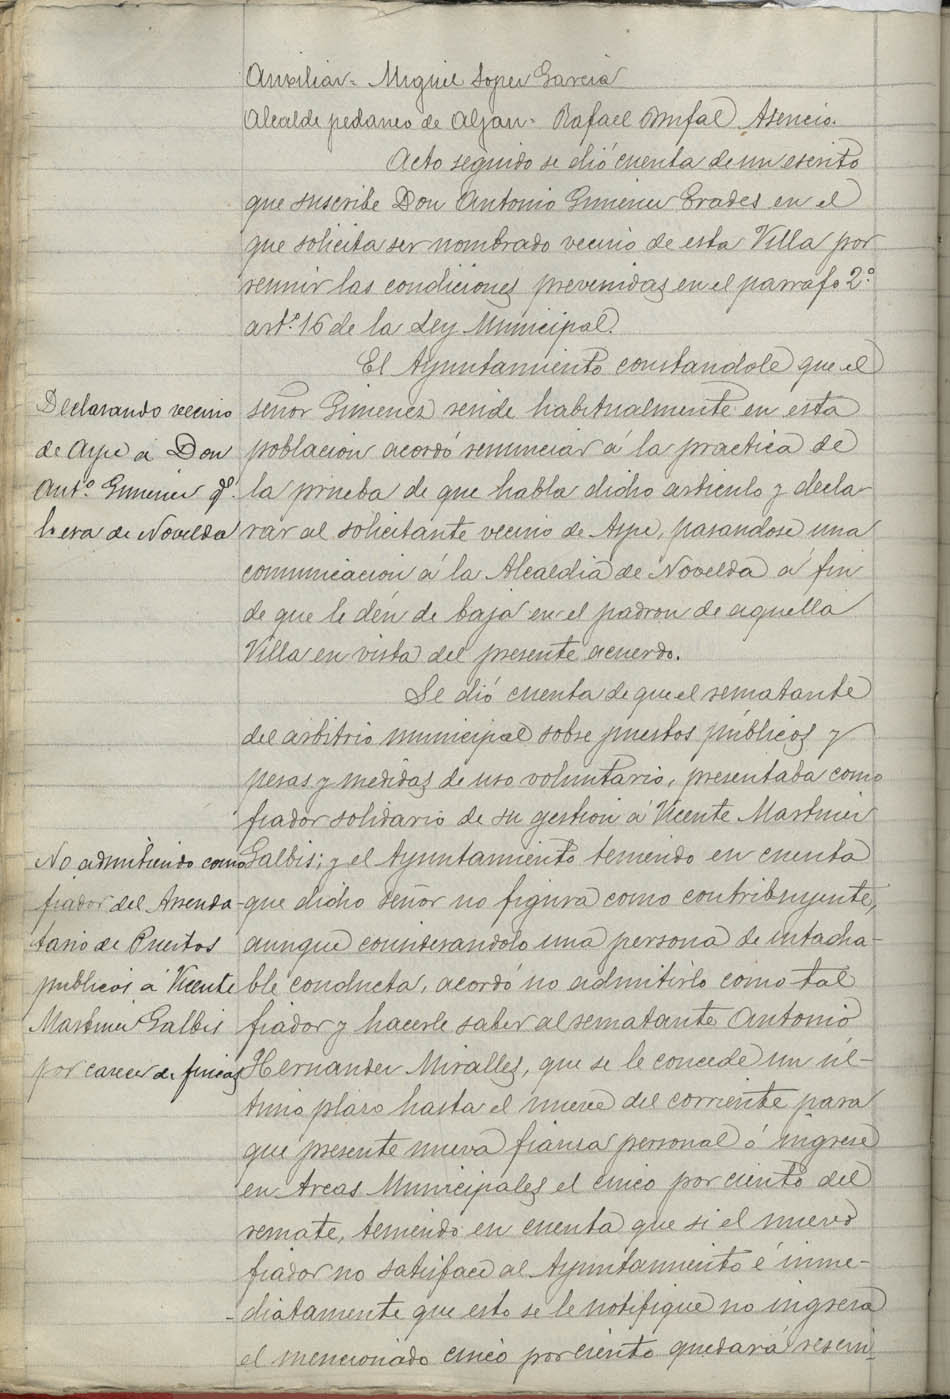 Auxiliar = Miguel Lopez Garcia
Alcalde pedaneo de Aljau = Rafael Asencio.
Acto seguido se dió cuenta de un escrito
que suscribe Don Antonio Gimenez Prades en el
que solicita ser nombrado vecino de esta Villa por
reunir las condiciones prevenidas en el parrafo 2º
artº 16 de la Ley Municipal.
El Ayuntamiento constandole que el
señor Gimenez reside habitualmente en esta
poblacion acordó renunciar á la practica de
la prueba de que habla dicho articulo y decla-
rar al solicitante vecino de Aspe, pasandose una
comunicacion á la Alcaldia de Novelda á fin
de que le dén de baja en el padron de aquella
Villa en vista del presente acuerdo.
Declarando vecino
de Aspe á Don
Antº Gimenez qº
lo era de Novelda
Se dió cuenta de que el rematante
del arbitrio municipal sobre puestos públicos y
pesas y medidas de uso voluntario, presentaba como
fiador solidario de su gestion á Vicente Martinez
Galbis; y el Ayuntamiento teniendo en cuenta
que dicho señor no figura como contribuyente,
aunque considerandolo una persona de intacha-
ble conducta, acordó no admitirlo como tal
fiador y hacerle saber al rematante Antonio
Hernandez Miralles, que se le concede un úl-
timo plazo hasta el nueve del corriente para
que presente nueva fianza personal ó ingrese
en Arcas Municipales el cinco por ciento del
remate, teniendo en cuenta que si el nuevo
fiador no satisface al Ayuntamiento é inme-
diatamente que esto se le notifique no ingresa
el mencionado cinco por ciento quedará rescin-
No admitiendo como
fiador del Arrenda-
tario de Puestos
publicos á Vicente
Martinez Galbis
por carecer de fincas